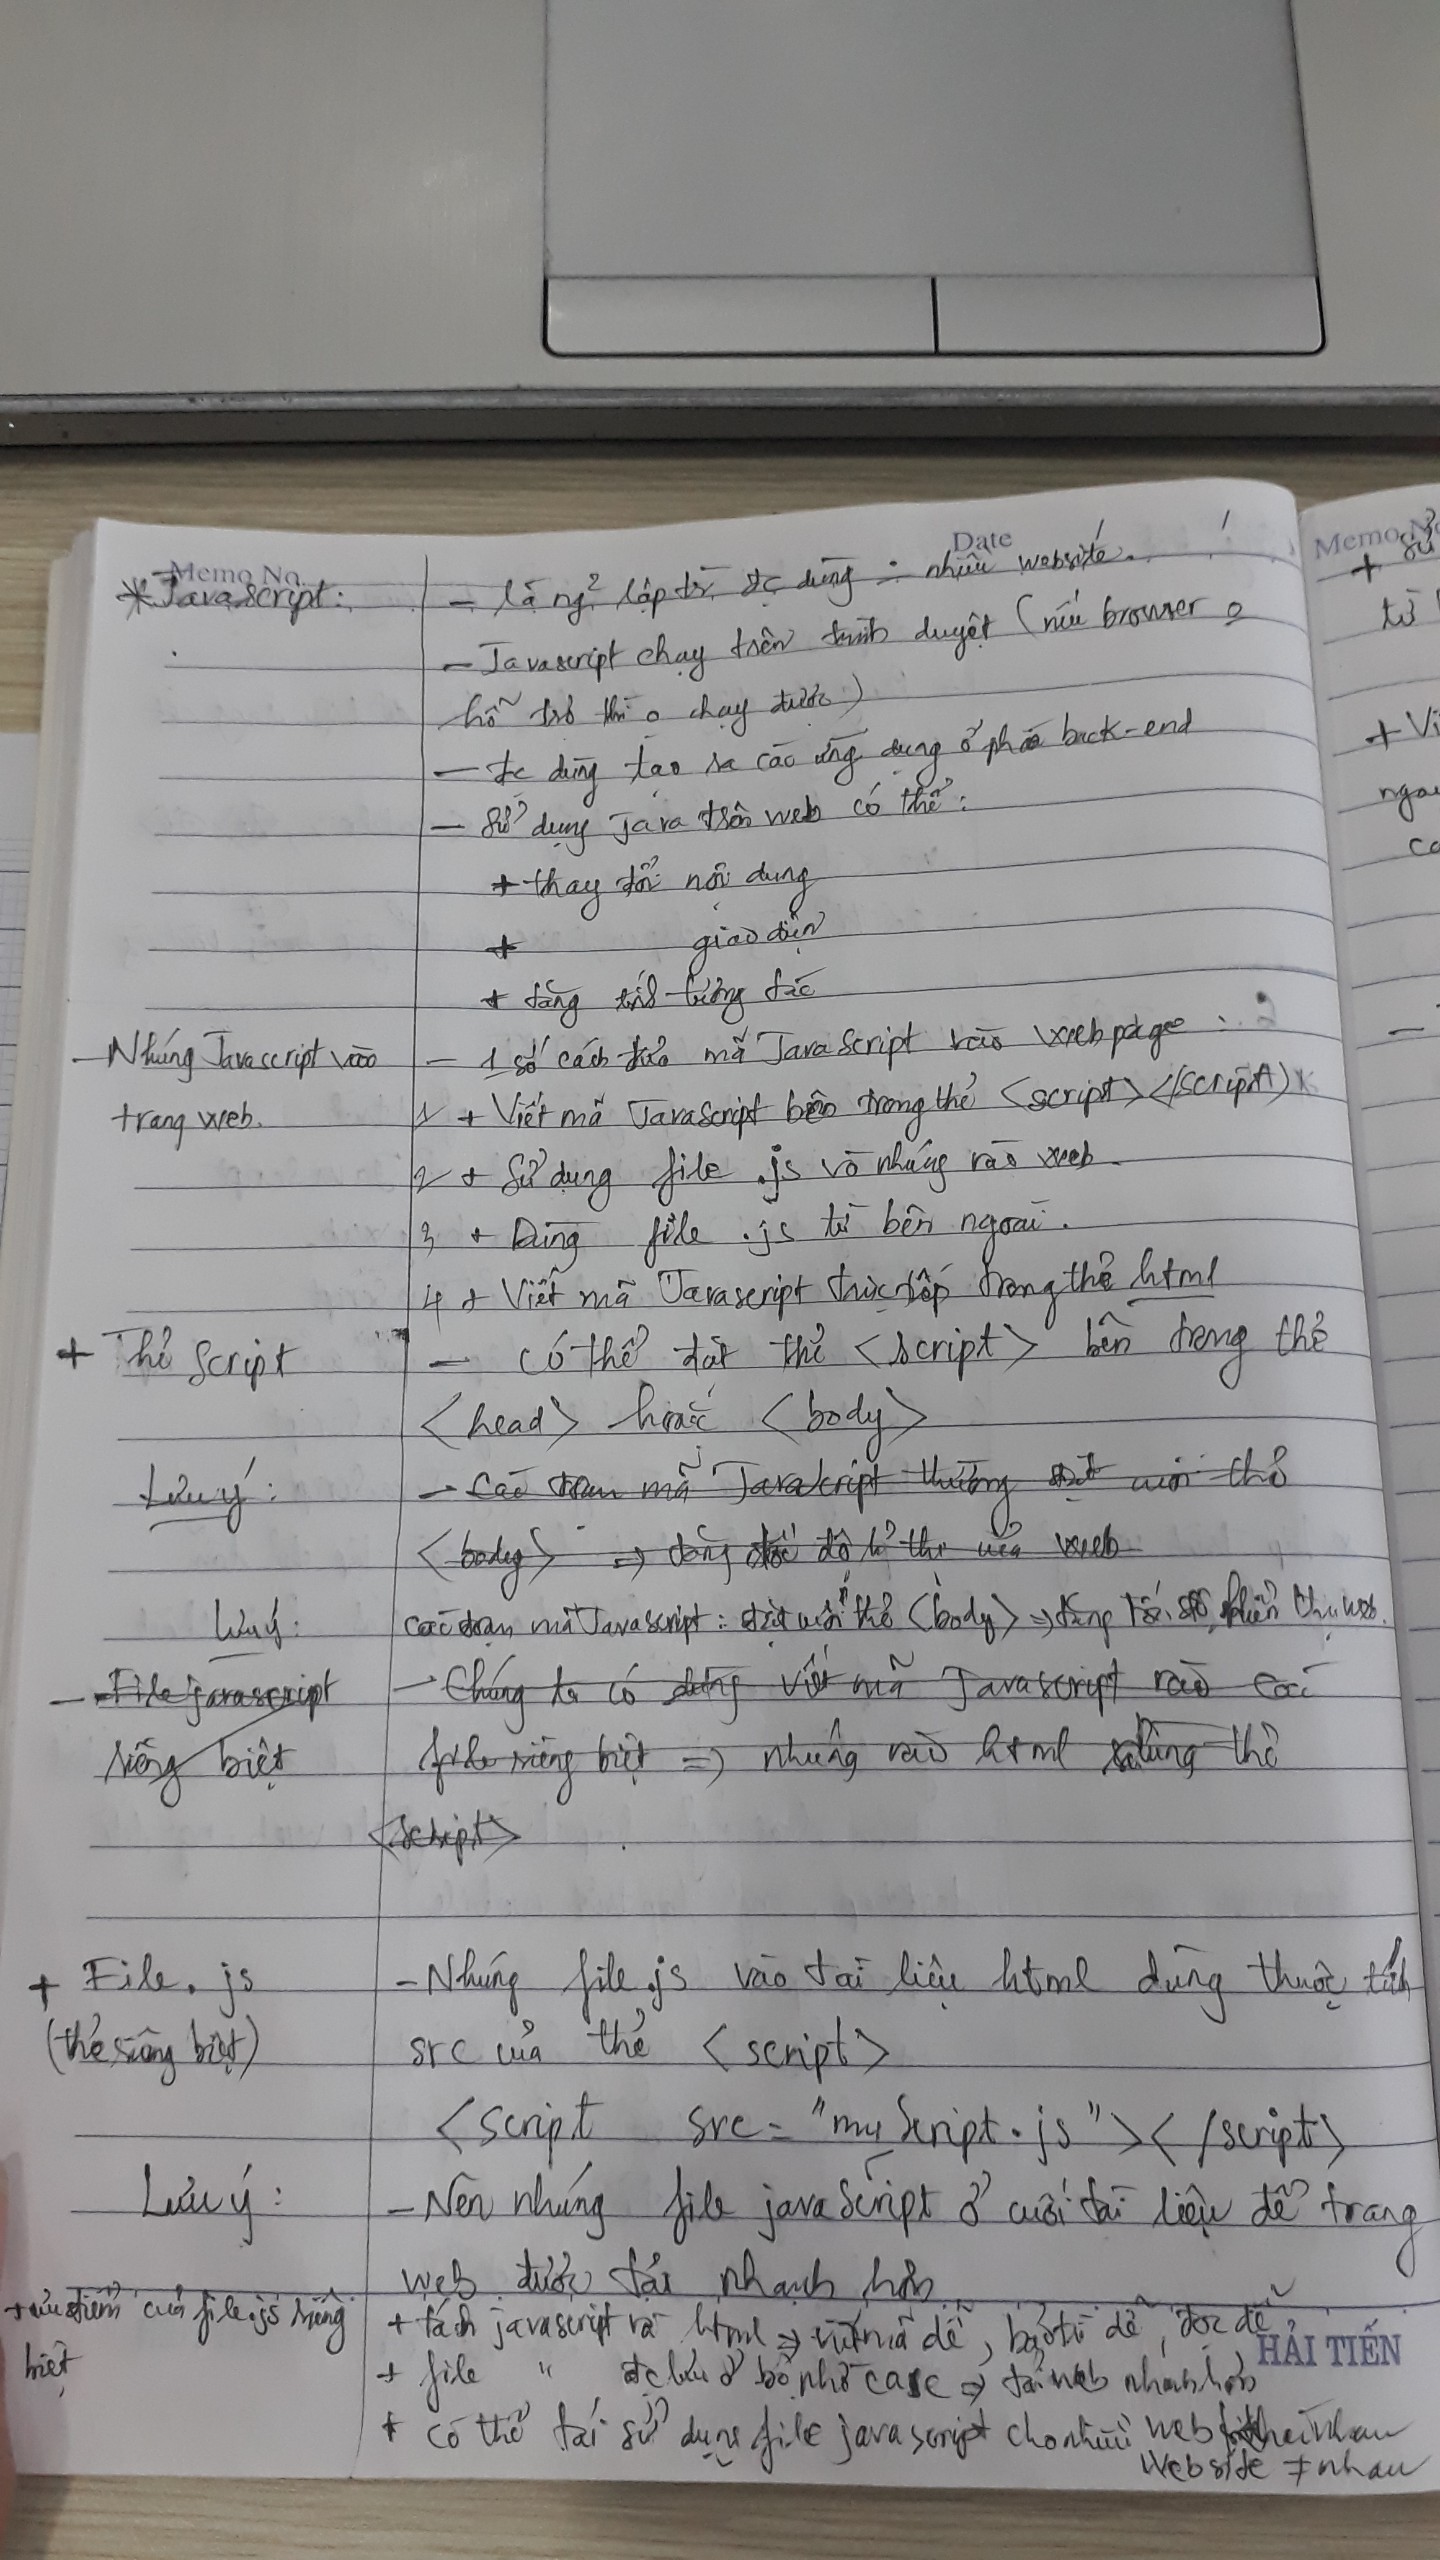 Memo No.
Date
* JavaScript: - là ng² lập tr. đc dùng = nhiều website.
- Javascript chạy trên trình duyệt (nếu browser o
hỗ trợ thì o chạy được)
- đc dùng tạo ra các ứng dụng ở phía back-end
- Sử dụng Java trên web có thể:
+ thay đổi nội dung
+ giao diện
+ tăng tính tương tác
- Nhúng Javascript vào - 1 số cách đưa mã JavaScript vào webpage:
trang web. 1 + Viết mã JavaScript bên trong thẻ <script></script>
2 + Sử dụng file .js và nhúng vào web.
3 + Dùng file .js từ bên ngoài.
4 + Viết mã Javascript trực tiếp trong thẻ html
+ Thẻ Script - có thể đặt thẻ <script> bên trong thẻ
<head> hoặc <body>
Lưu ý: - Các đoạn mã JavaScript thường đặt cuối thẻ
<body> => tăng tốc độ h thị của web
Lưu ý: các đoạn mã JavaScript: đặt cuối thẻ <body> => tăng tốc độ hiển thị web.
- File javascript - Chúng ta có dùng viết mã Javascript vào các
riêng biệt file riêng biệt => nhúng vào html dùng thẻ
<script>
+ File.js - Nhúng file.js vào tài liệu html dùng thuộc tính
(thẻ riêng biệt) src của thẻ <script>
<script src="myScript.js"></script>
Lưu ý: - Nên nhúng file javaScript ở cuối tài liệu để trang
web được tải nhanh hơn
+ ưu điểm của file.js riêng + tách javascript và html => viết mã dễ, bảo trì dễ, đọc dễ
biệt + file " đc lưu ở bộ nhớ => tải web nhanh hơn
HẢI TIẾN
+ có thể tái sử dụng file javascript cho nhiều web nhau
website ≠ nhau
Memo No
+ Sử
từ
+ Vi